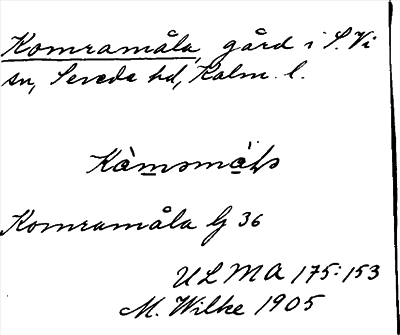 Komramåla, gård i S. Vi
sn, Sevede hd, Kalm. l.
Komramåla G 36
ULMA 175:153
M. Wilke 1905